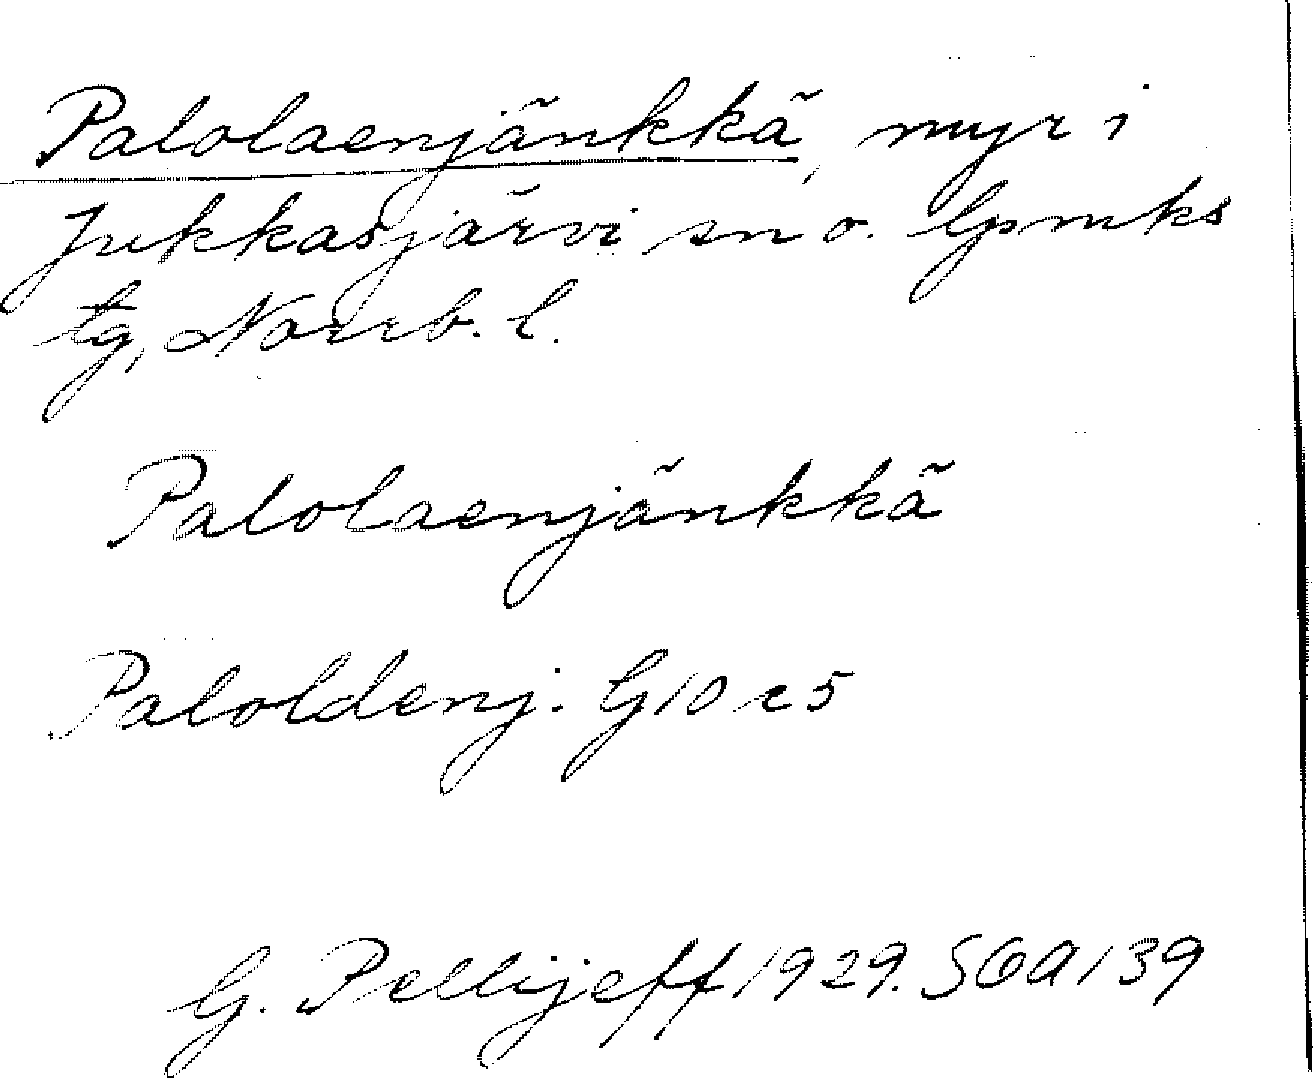 Palolaenjänkkä, myr i
Jukkasjärvi sn o. lpmks
tg, Norrb. l.
Palolaenjänkkä
Paloldenj. G10 e5
G. Pellijeff 1929. SOA 139